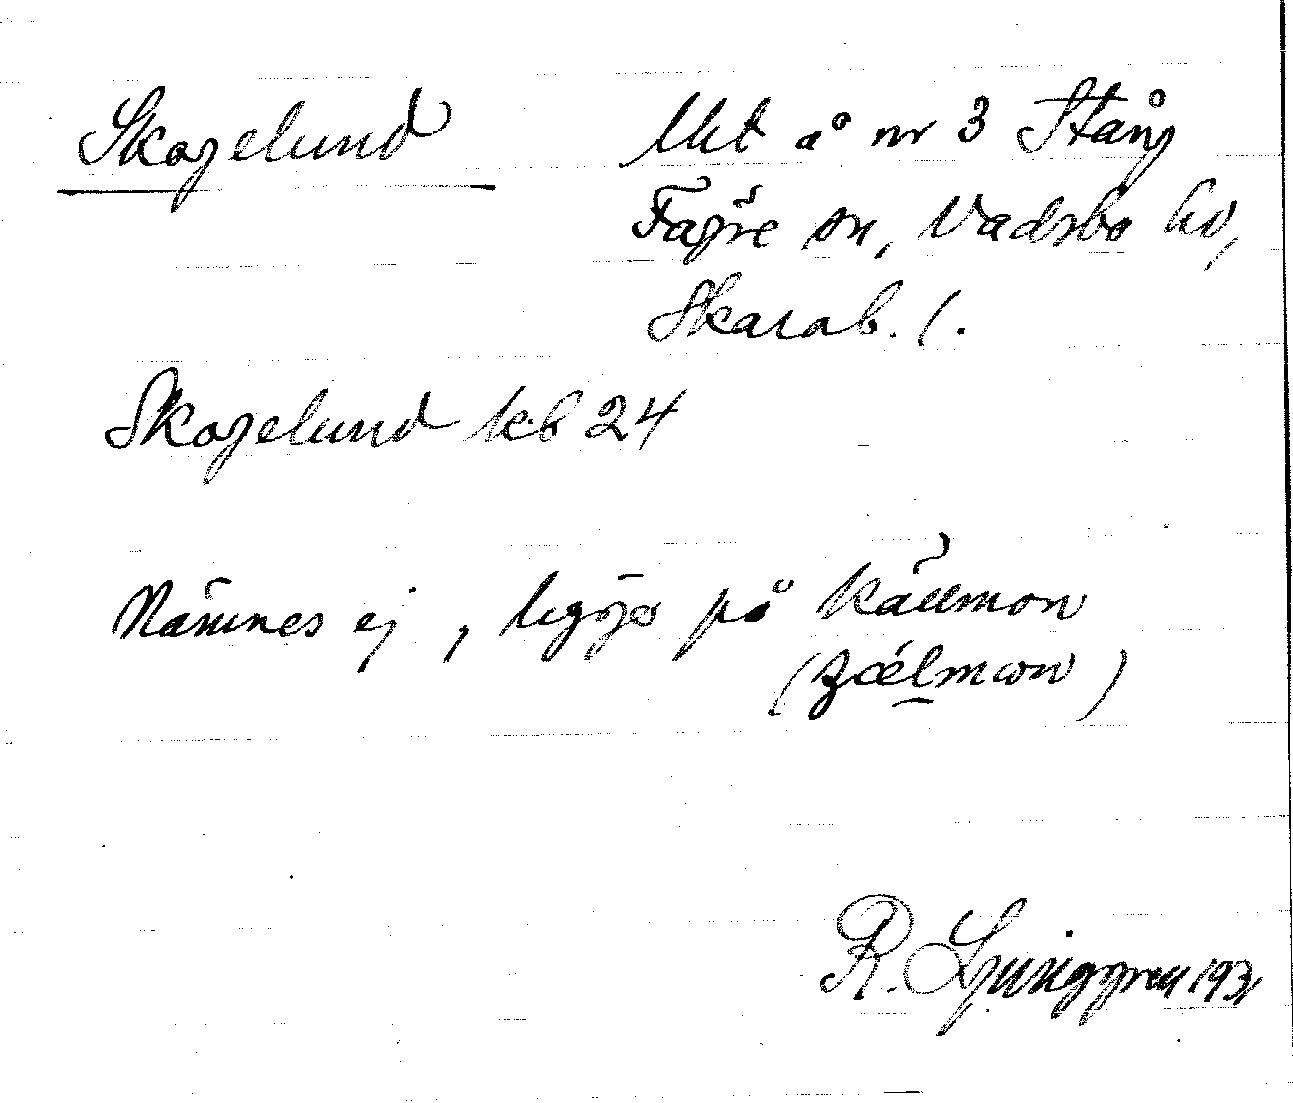 Skogelund
Uet å nr 3 Stång
Fägre sn, Vadsbo hd,
Skarab. l.
Skogelund kb 24
Nämnes ej, ligger på Källmon
R. Ljunggren